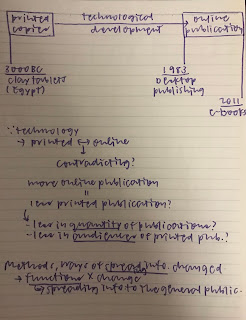 printed copies → technological development → online publication
3000BC clay tablets (Egypt)
1983 Desktop publishing
2011 e-books
∵ technology
→ printed ↔ online
contradicting?
more online publication
=
less printed publication?
- less in quantity of publications?
- less in audiences of printed pub.?
Methods, ways of spread info changed
→ functions × change
↳ spreading info to the general public.